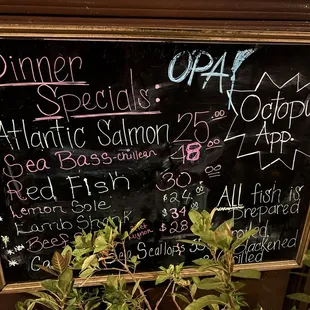 Dinner OPA!
Specials:
Octopus
App.
Atlantic Salmon 25.00
Sea Bass-chilean 48
Red Fish 30.00
Lemon Sole $24.00
Lamb Shank $34
Beef $
Scallops $28.00
All fish is
Prepared
Broiled
Blackened
Grilled